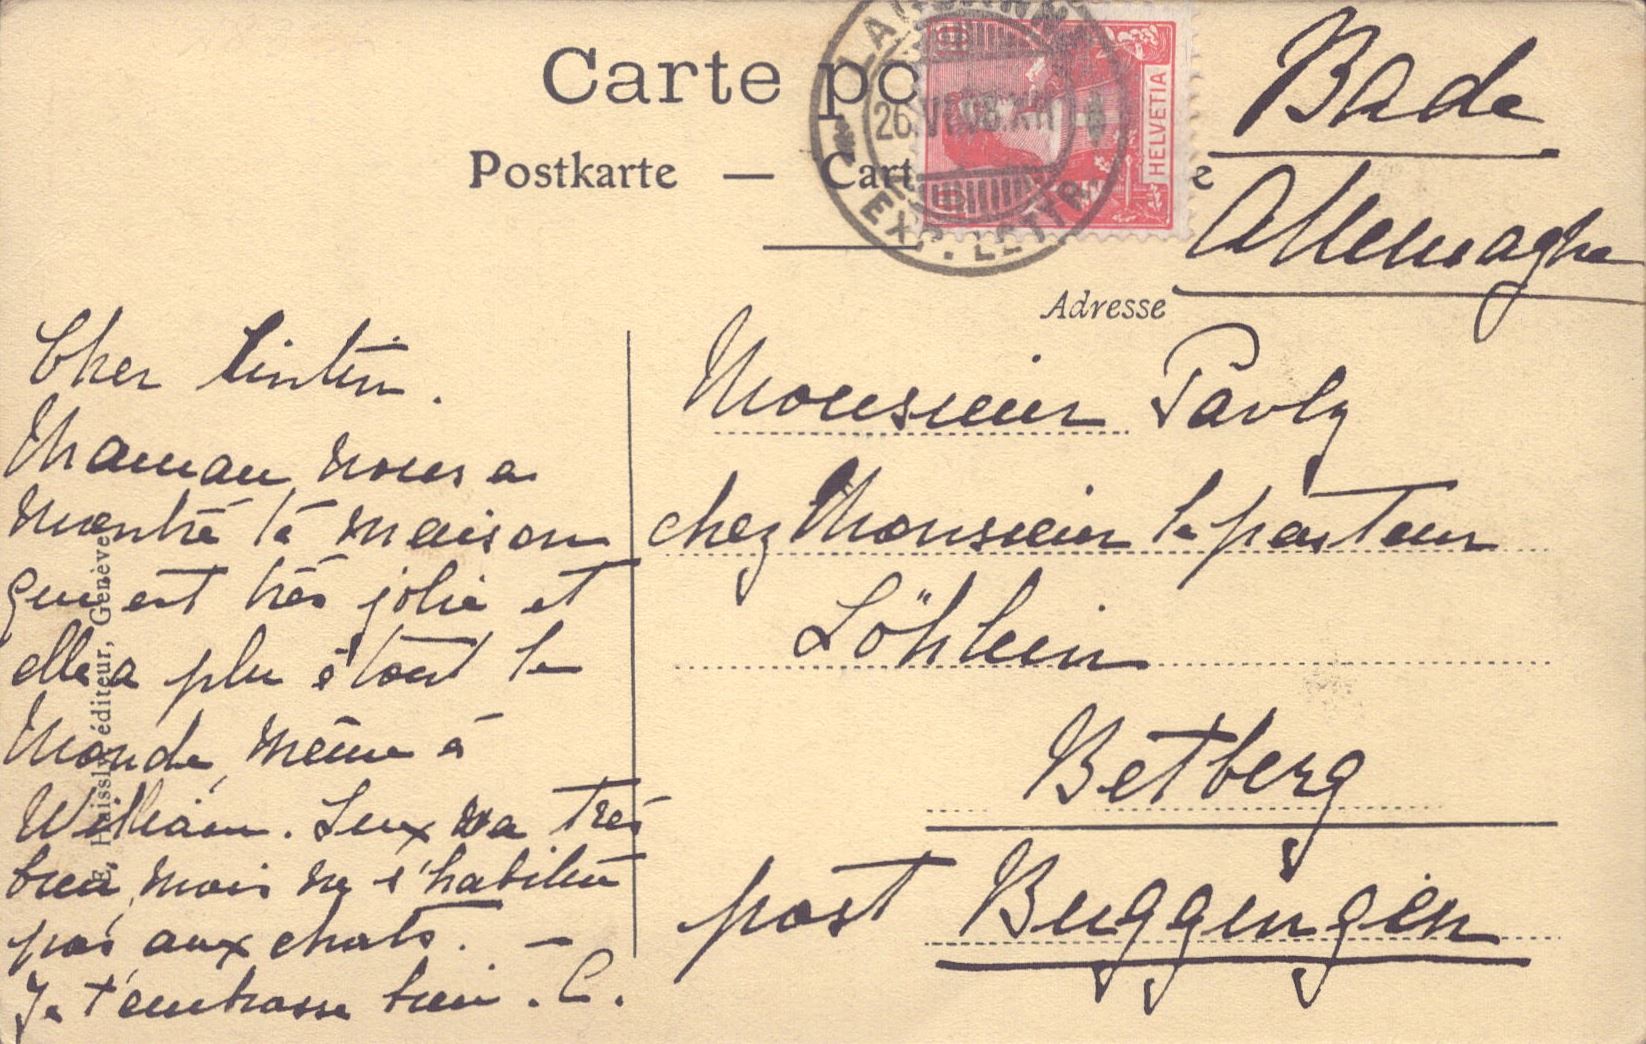 Carte po
Postkarte — Cart e
LAUSANNE
26.VI.08.XII
EXP. LETTR.
HELVETIA
Bade
Allemagne
Adresse
Cher Tintin.
Maman nous a
montré la maison
qui est très jolie et
elle a plu à tout le
monde, même à
William. Lux va très
bien, mais ne s'habitue
pas aux chats. —
Je t'embrasse bien. C.
Monsieur Pavly
chez Monsieur le pasteur
Löhlein
Betberg
post Buggingen
éditeur, Genève